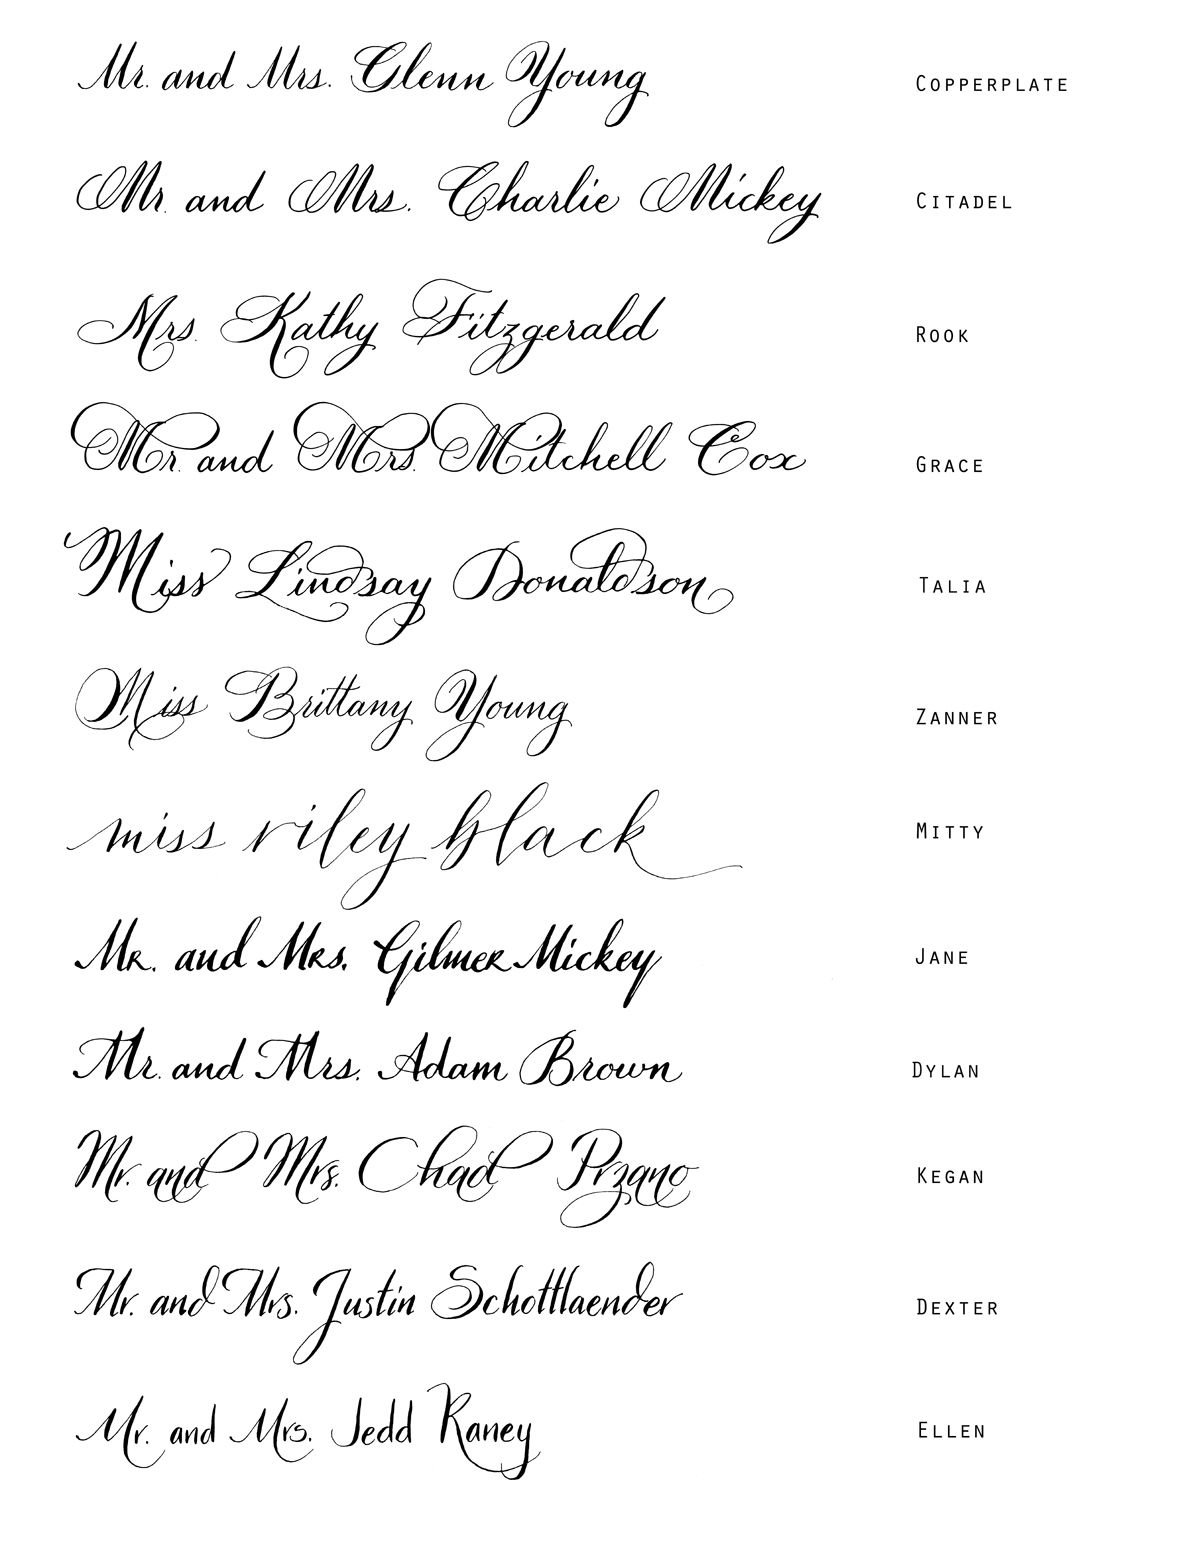 Mr. and Mrs. Glenn Young COPPERPLATE
Mr. and Mrs. Charlie Mickey CITADEL
Mrs. Kathy Fitzgerald ROOK
Mr. and Mrs. Mitchell Cox GRACE
Miss Lindsay Donaldson TALIA
Miss Brittany Young ZANNER
miss riley black MITTY
Mr. and Mrs. Gilmer Mickey JANE
Mr. and Mrs. Adam Brown DYLAN
Mr. and Mrs. Chad Przano KEGAN
Mr. and Mrs. Justin Schottlaender DEXTER
Mr. and Mrs. Jedd Raney ELLEN